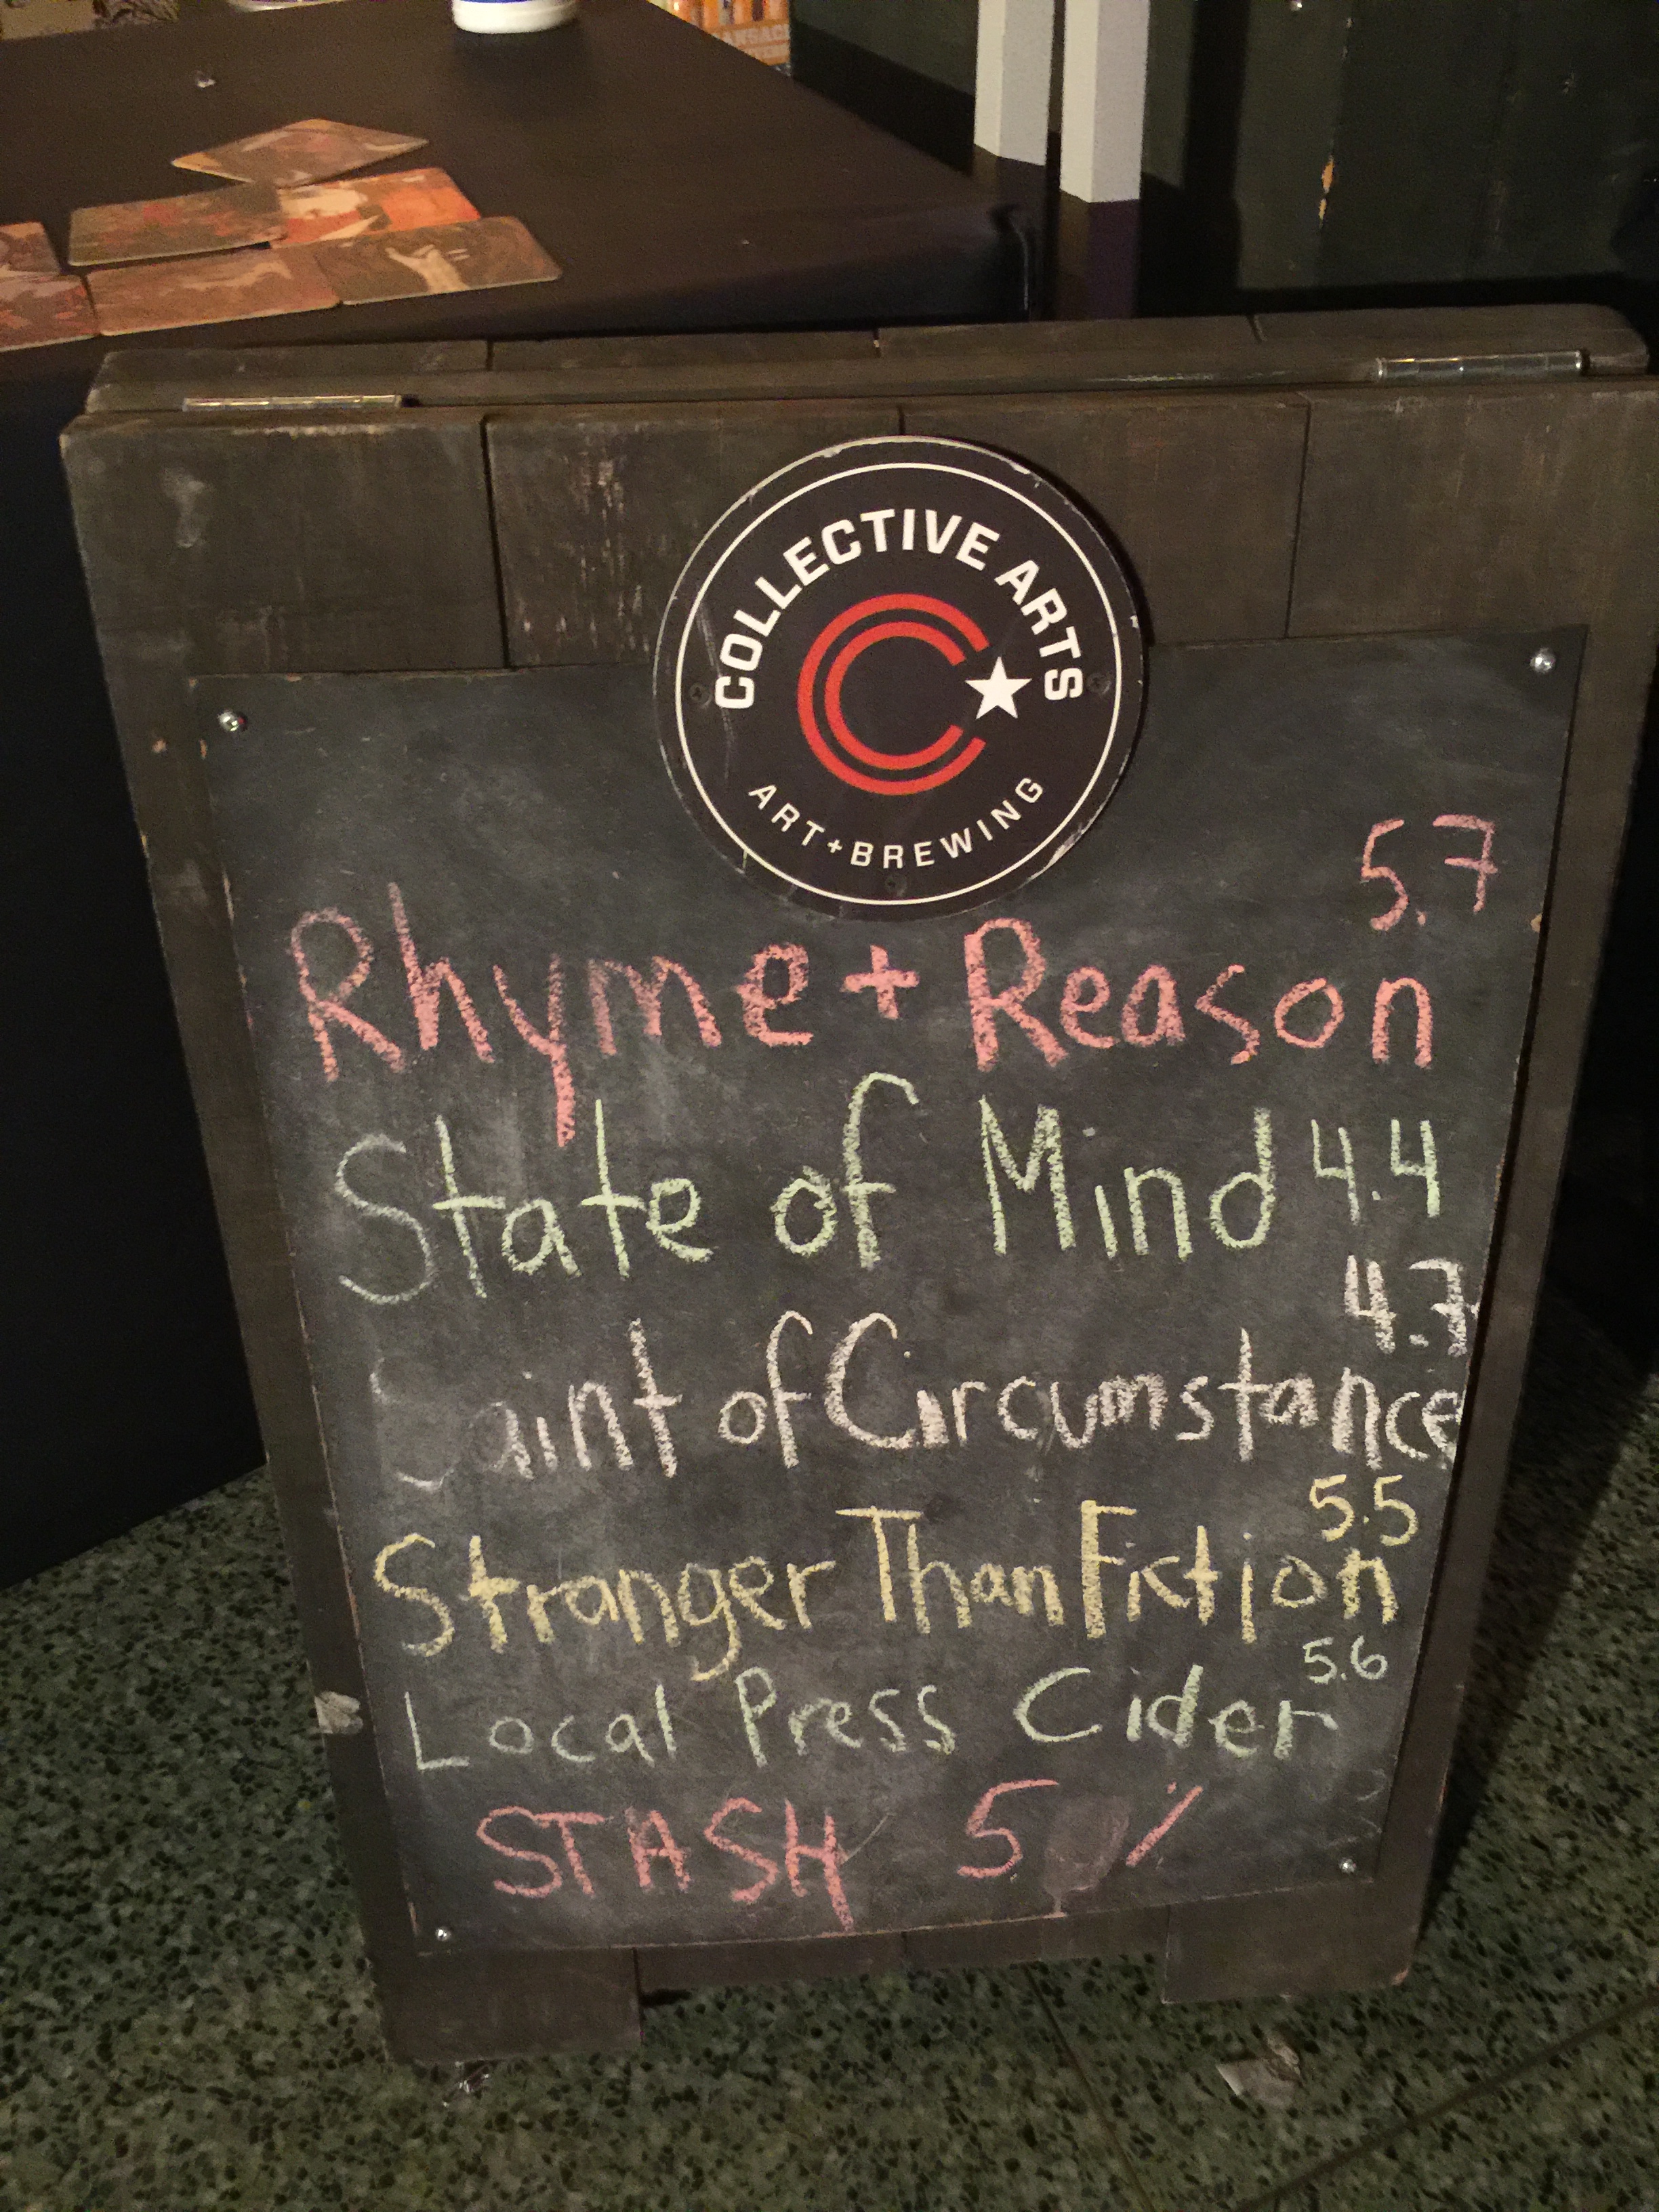 ANSAC
COLLECTIVE ARTS
ART+BREWING
5.7
Rhyme + Reason
State of Mind 4.4
4.7
Saint of Circumstance
5.5
Stranger Than Fiction
5.6
Local Press Cider
STASH 5 %